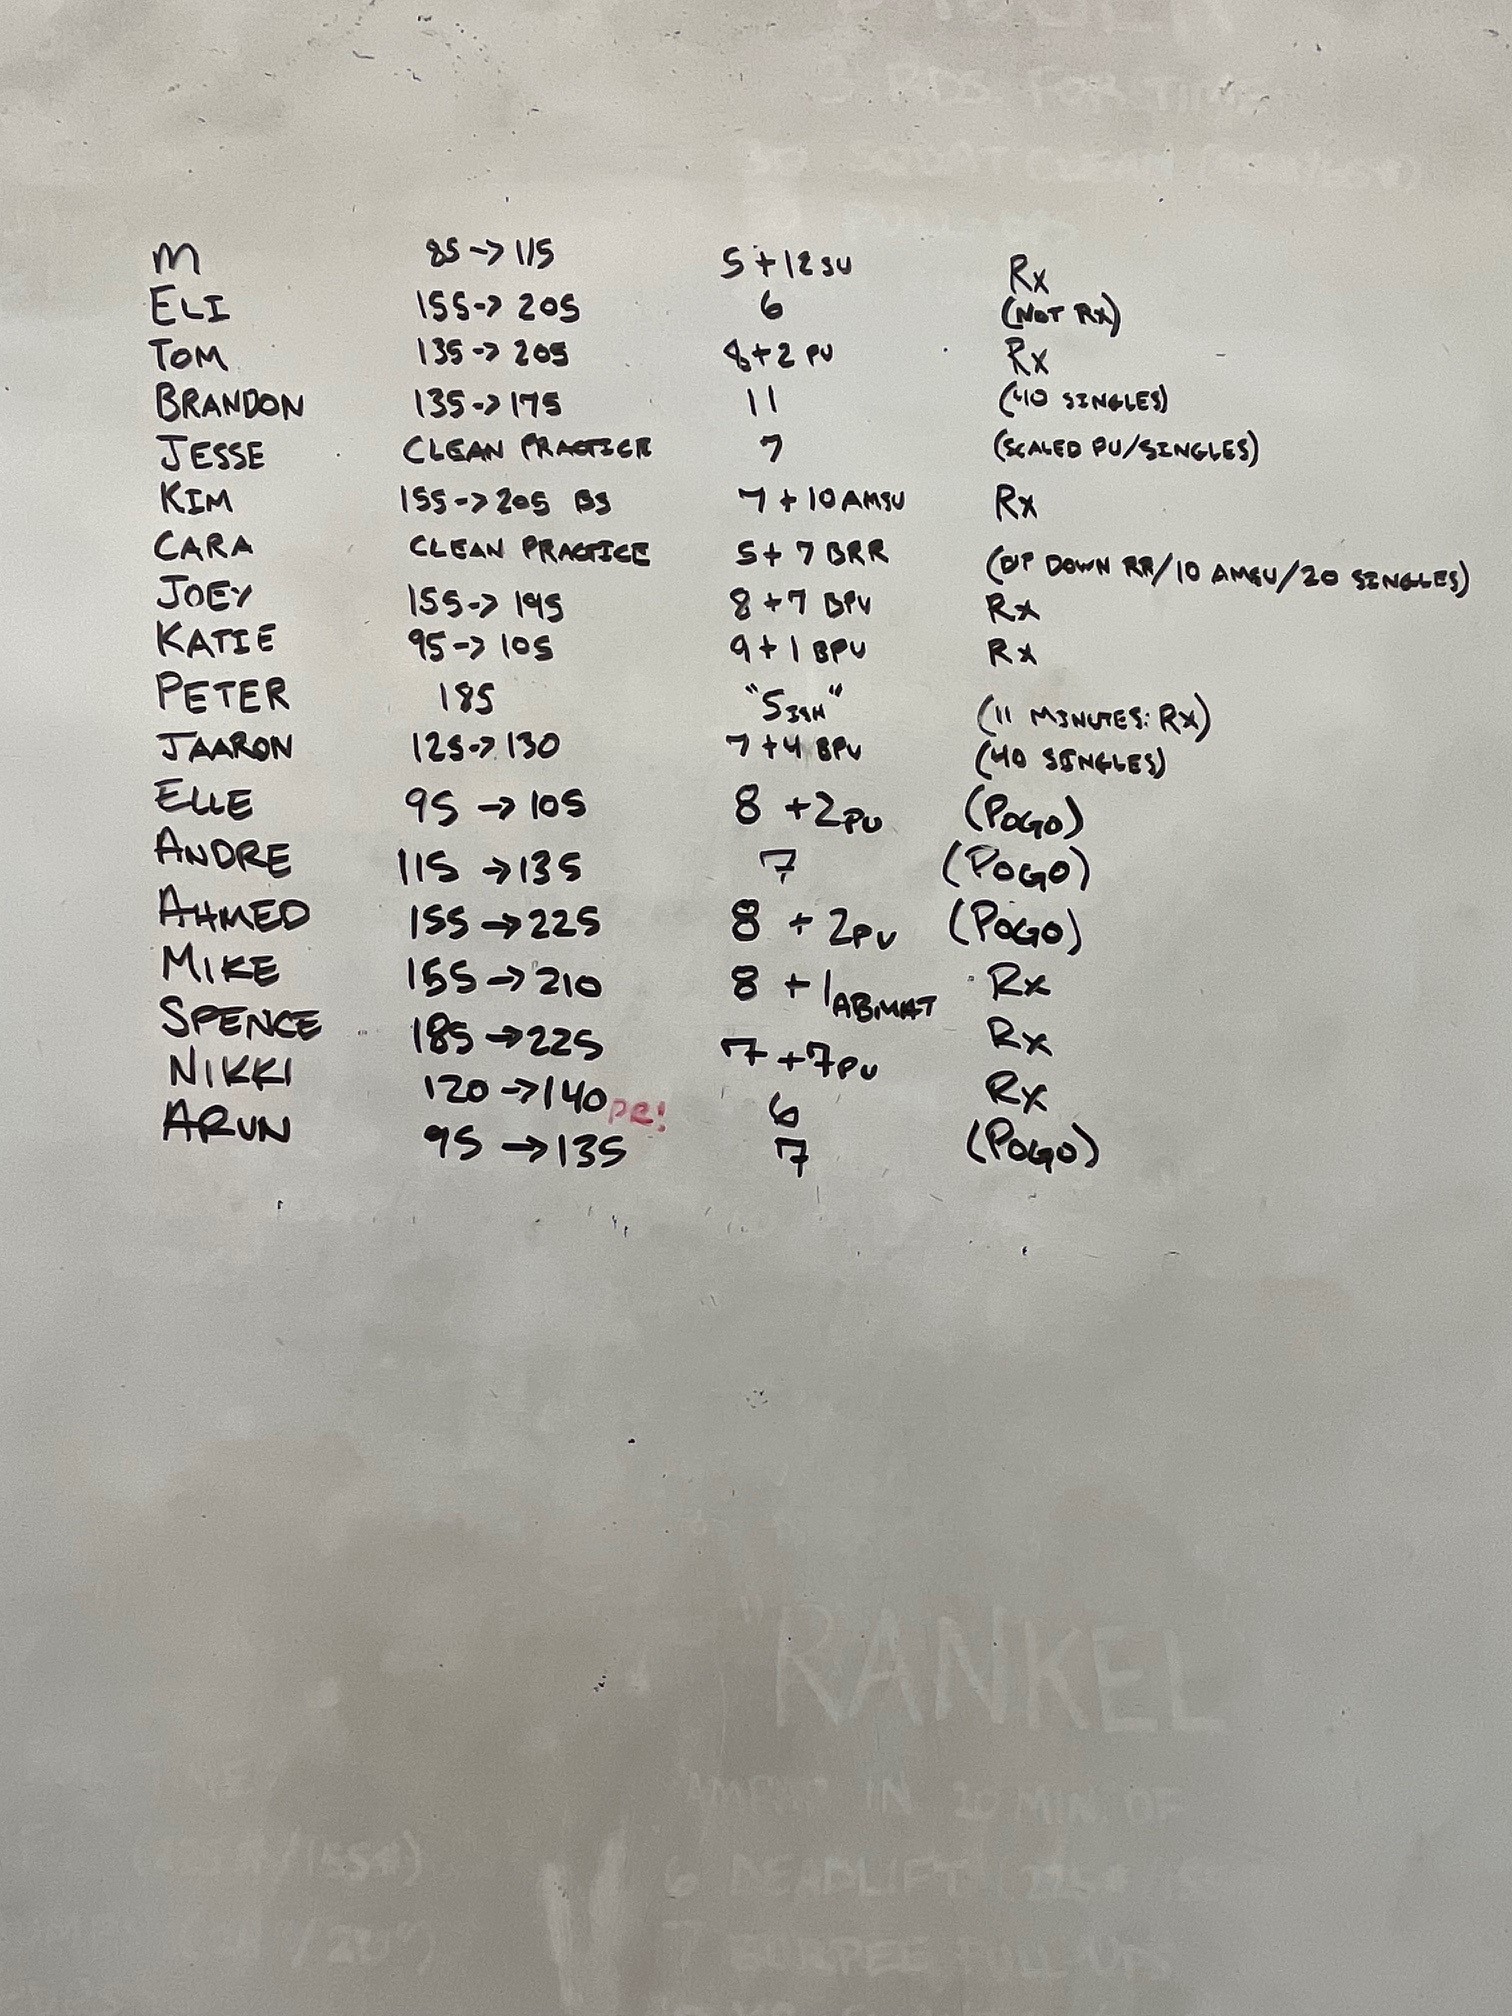 3 RDS. FOR TIME
M 85->115 5+12 SU Rx
ELI 155->205 6 (NOT Rx)
TOM 135->205 8+2 PU Rx
BRANDON 135->175 11 (40 SINGLES)
JESSE CLEAN PRACTICE 7 (SCALED PU/SINGLES)
KIM 155->205 BS 7+10 AMSU Rx
CARA CLEAN PRACTICE 5+7 BRR (UP DOWN RR/10 AMSU/20 SINGLES)
JOEY 155->195 8+7 BPU Rx
KATIE 95->105 9+1 BPU Rx
PETER 185 "5ISH" (11 MINUTES: Rx)
JAARON 125->130 7+4 BPU (40 SINGLES)
ELLE 95->105 8+2PU (POGO)
ANDRE 115->135 7 (POGO)
AHMED 155->225 8+2PU (POGO)
MIKE 155->210 8+1ABMAT Rx
SPENCE 185->225 7+7PU Rx
NIKKI 120->140 PR! 6 Rx
ARUN 95->135 7 (POGO)
"RANKEL"
AMRAP IN 20 MIN. OF
6 DEADLIFT (225#
7 BURPEE PULL UPS